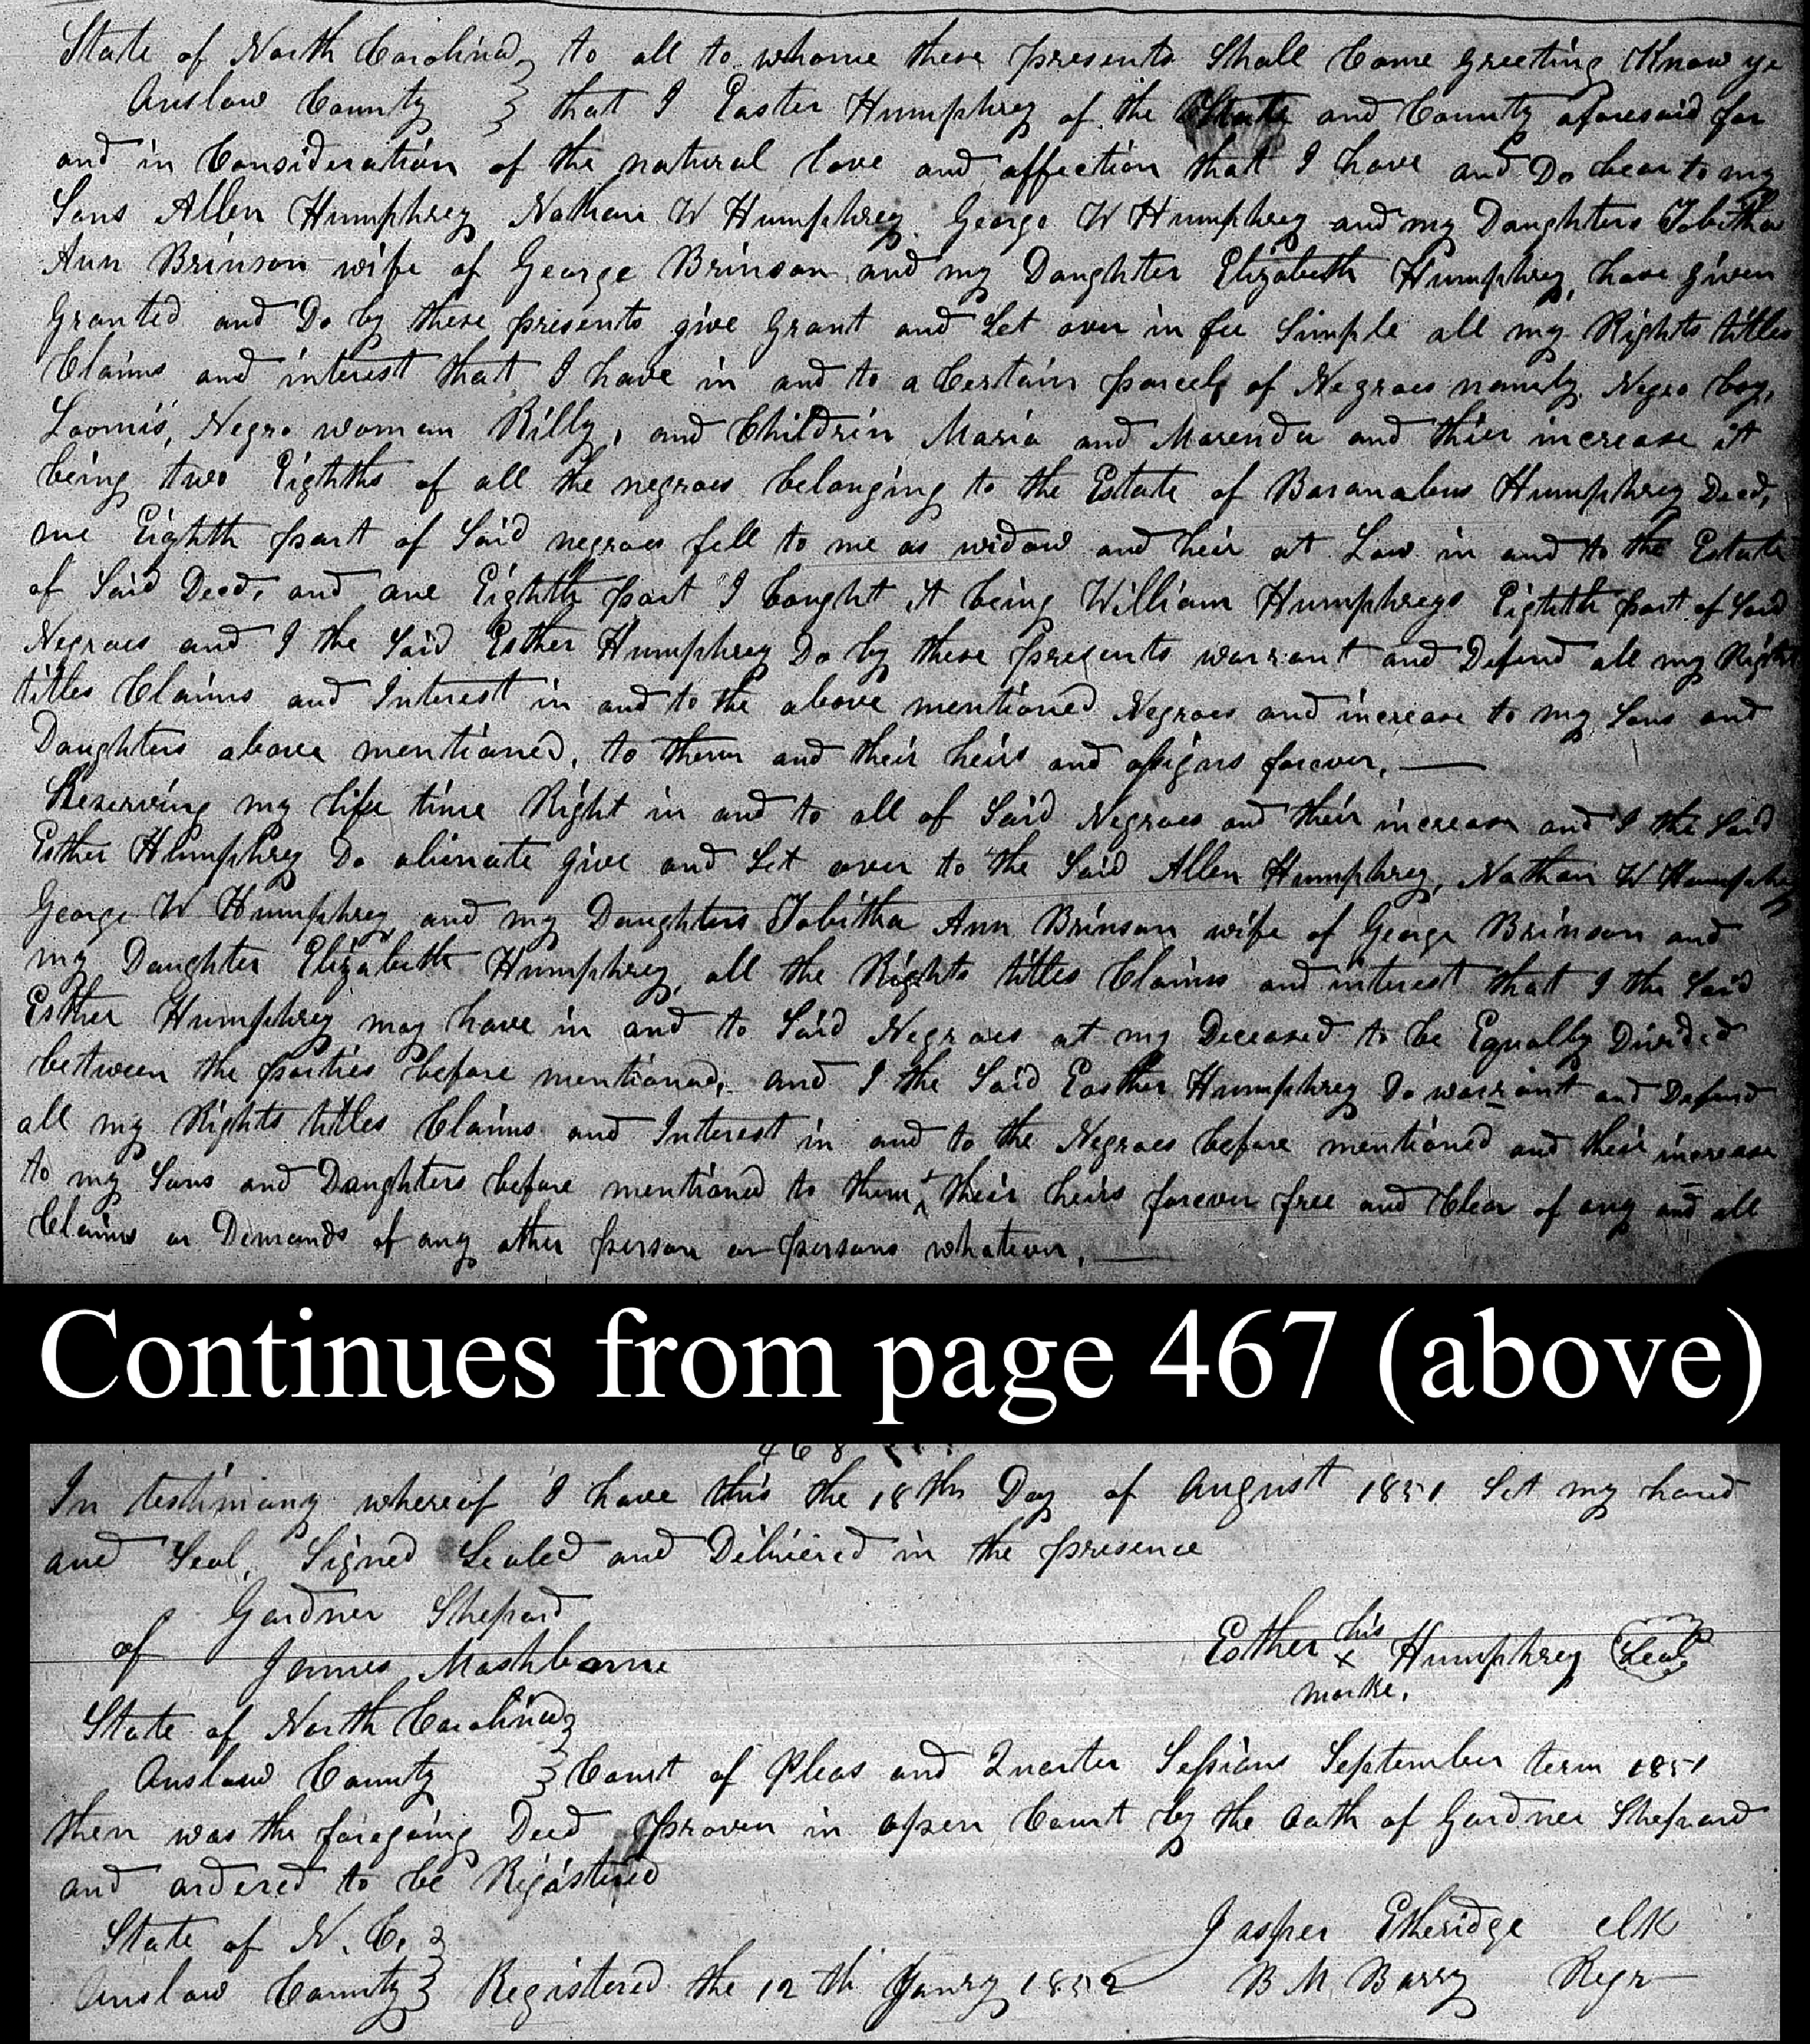 State of North Carolina } to all to whome these presents Shall Come Greeting Know ye
Onslow County } that I Easter Humphrey of the State and County aforesaid for
and in Consideration of the natural love and affection that I have and Do bear to my
Sons Allen Humphrey Nathan W Humphrey. George W Humphrey and my Daughters Tobitha
Ann Brinson wife of George Brinson and my Daughter Elizabeth Humphrey, have given
Granted and Do by these presents give Grant and Set over in fee Simple all my Rights titles
Claims and interest that I have in and to a Certain parcel of Negroes namely Negro boy,
Loomis, Negro woman Billy, and Childrin Maria and Marenda and thier increase it
being two Eighths of all the negroes belonging to the Estate of Baranabus Humphrey Decd,
one Eighth part of Said negroes fell to me as widow and heir at Law in and to the Estate
of Said Decd, and one Eighth part I bought it being William Humphreys Eighth part of Said
Negroes and I the Said Esther Humphrey Do by these presents warrant and Defend all my Right
titles Claims and Interest in and to the above mentioned Negroes and increase to my Sons and
Daughters above mentioned, to them and their heirs and assigns forever. —
Reserving my life time Right in and to all of Said Negroes and their increase and I the Said
Esther Humphrey Do alienate give and Set over to the Said Allen Humphrey, Nathan W Humphrey
George W Humphrey and my Daughters Tobitha Ann Brinson wife of George Brinson and
my Daughter Elizabeth Humphrey, all the Rights titles Claims and interest that I the Said
Esther Humphrey may have in and to Said Negroes at my Deceased to be Equally Divided
between the parties before mentioned, and I the Said Easther Humphrey Do warrant and Defend
all my Rights titles Claims and Interest in and to the Negroes before mentioned and their increase
to my Sons and Daughters before mentioned to them their heirs forever free and Clear of any and all
Claims or Demands of any other person or persons whatever. —
Continues from page 467 (above)
468
In testimony whereof I have this the 18th Day of August 1851 Set my hand
and Seal, Signed Sealed and Delivered in the presence
Gardner Shepard
of
James Mashborne
Esther his x Humphrey Seal
marke.
State of North Carolina }
Onslow County } Court of Pleas and Quarter Sessions September term 1851
then was the foregoing Deed proven in open Court by the Oath of Gardner Shepard
and ordered to be Registered
Jasper Etheridge Clk
State of N. C. }
Onslow County } Registered the 12th Janry 1852 B M Barry Regr